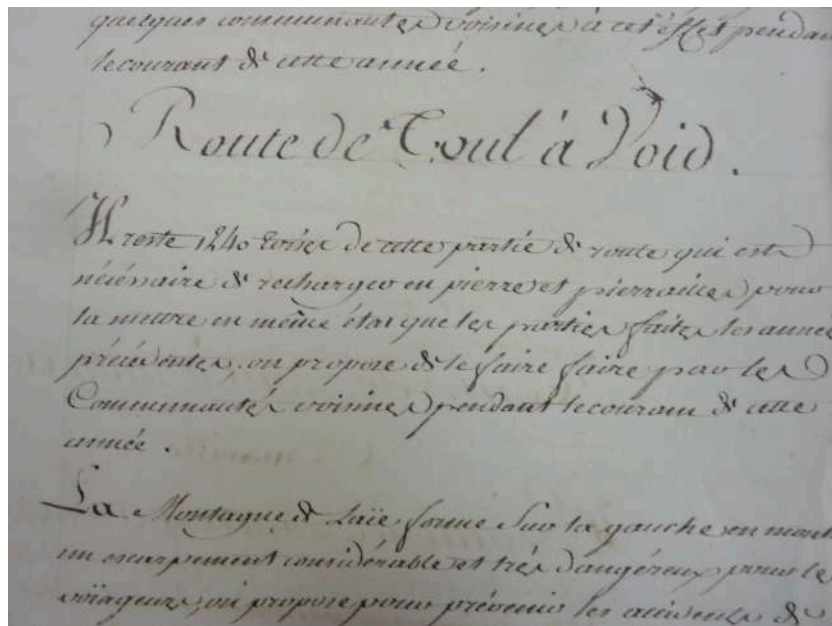 quelques communautés voisines à cet effet pendan
le courant de cette année.
Route de Toul à Void.
Il reste 1240 toises de cette partie de route qui est
nécessaire de recharger en pierre et pierrailles pour
la mettre en même état que les parties faites les anneé
précédentes, on propose de le faire faire par les
Communautés voisines pendant le courant de cette
année.
La Montagne de Laïe forme sur la gauche en mont
un escarpement considérable et très dangéreux pour le
voïageurs, on propose pour prévenir les accidents de